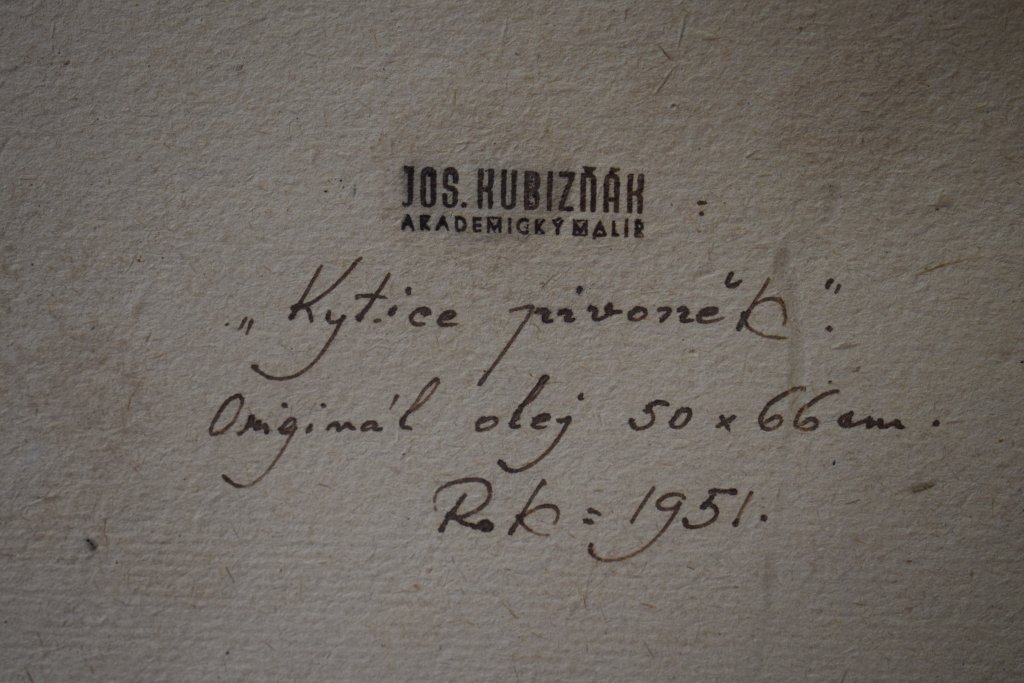 JOS. KUBIZŇÁK :
AKADEMICKÝ MALÍŘ
„Kytice pivoněk“.
Originál olej 50 x 66 cm.
Rok = 1951.